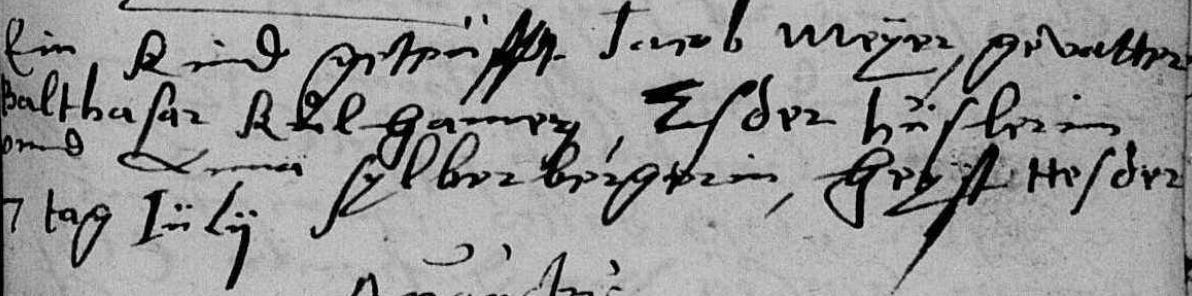 Ein Kind getaüfft Jacob Meÿer, gevatter
Balthasar Kilhamer, Esder Hüslerin
vnnd Anna sylberbergerin, heÿst Hesder
7 tag Jülÿ